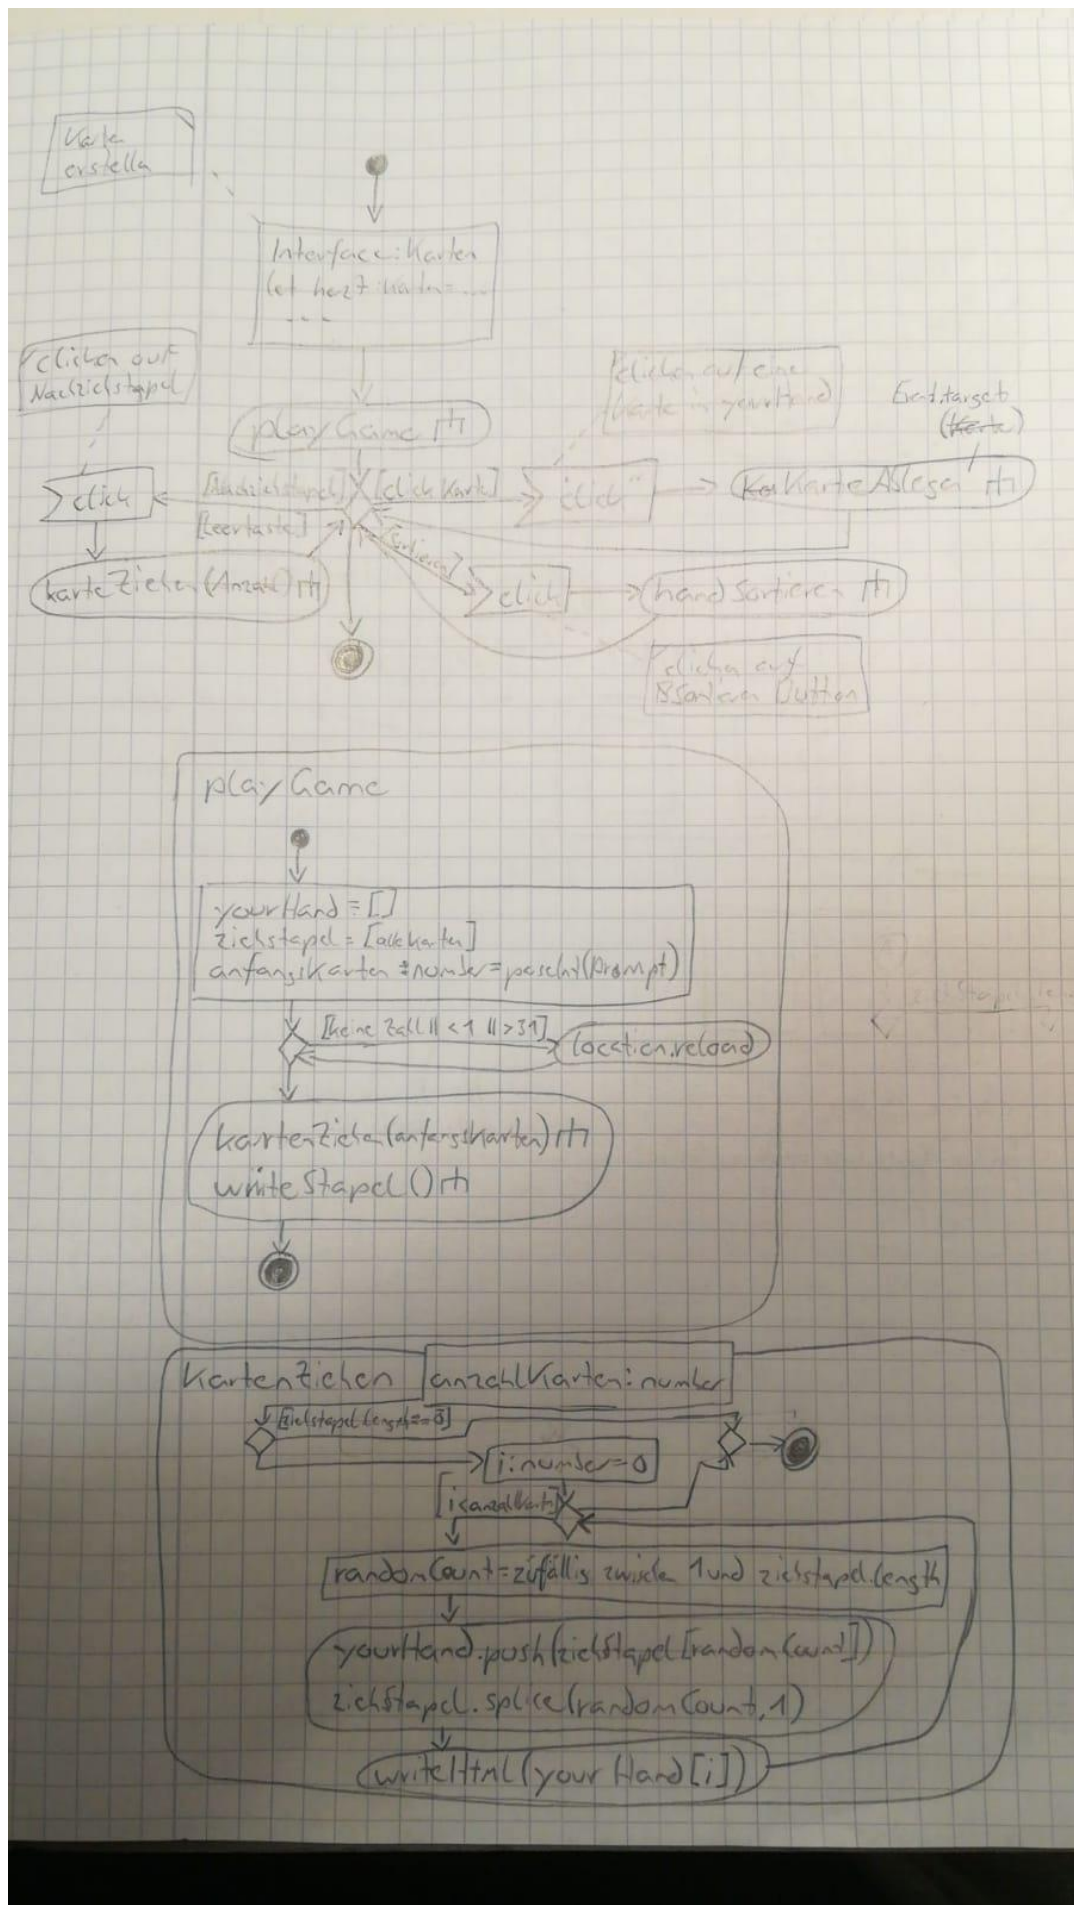 Karten
erstellen
Interface: Karten
let herz7: Karten = ....
- - -
clicken auf
Nachziehstapel
clicken auf eine
Karte in yourHand
Event.target
playGame
[Nachziehstapel] [click Karte]
click
click
Karte Ablegen
[Leertaste]
[Sortieren]
karteZiehen (Anzahl)
click
hand Sortieren
clicken auf
Sortieren Button
playGame
yourHand = []
ziehstapel = [alleKarten]
anfangsKarten : number = parseInt(Prompt)
[keine Zahl || < 1 || > 31]
location.reload
kartenZiehen(anfangsKarten)
writeStapel()
KartenZiehen anzahlKarten: number
[ziehstapel.length == 0]
i: number = 0
[i < anzahlKarten]
randomCount = zufällig zwischen 1 und ziehstapel.length
yourHand.push(ziehStapel[randomCount])
ziehStapel.splice(randomCount, 1)
writeHtml(yourHand[i])